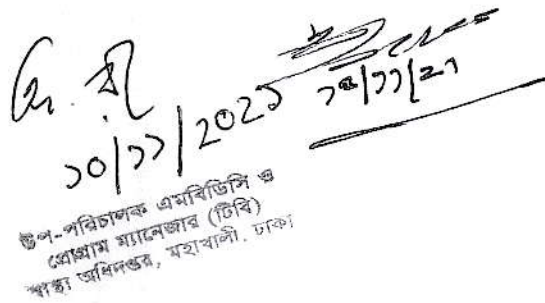 ১০|১১|২০২১
১০|১১|২১
উপ-পরিচালক এমবিডিসি ও
প্রোগ্রাম ম্যানেজার (টিবি)
স্বাস্থ্য অধিদপ্তর, মহাখালী, ঢাকা